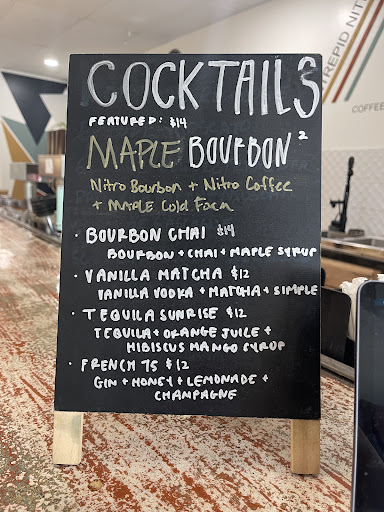 COCKTAILS
FEATURED: $14
MAPLE BOURBON²
Nitro Bourbon + Nitro Coffee
+ MAPLE Cold Foam
· BOURBON CHAI $14
BOURBON + CHAI + MAPLE SYRUP
· VANILLA MATCHA $12
VANILLA VODKA + MATCHA + SIMPLE
· TEQUILA SUNRISE $12
TEQUILA + ORANGE JUICE +
HIBISCUS MANGO SYROP
· FRENCH 75 $12
GIN + HONEY + LEMONADE +
CHAMPAGNE
TREPID NIT
COFFEE